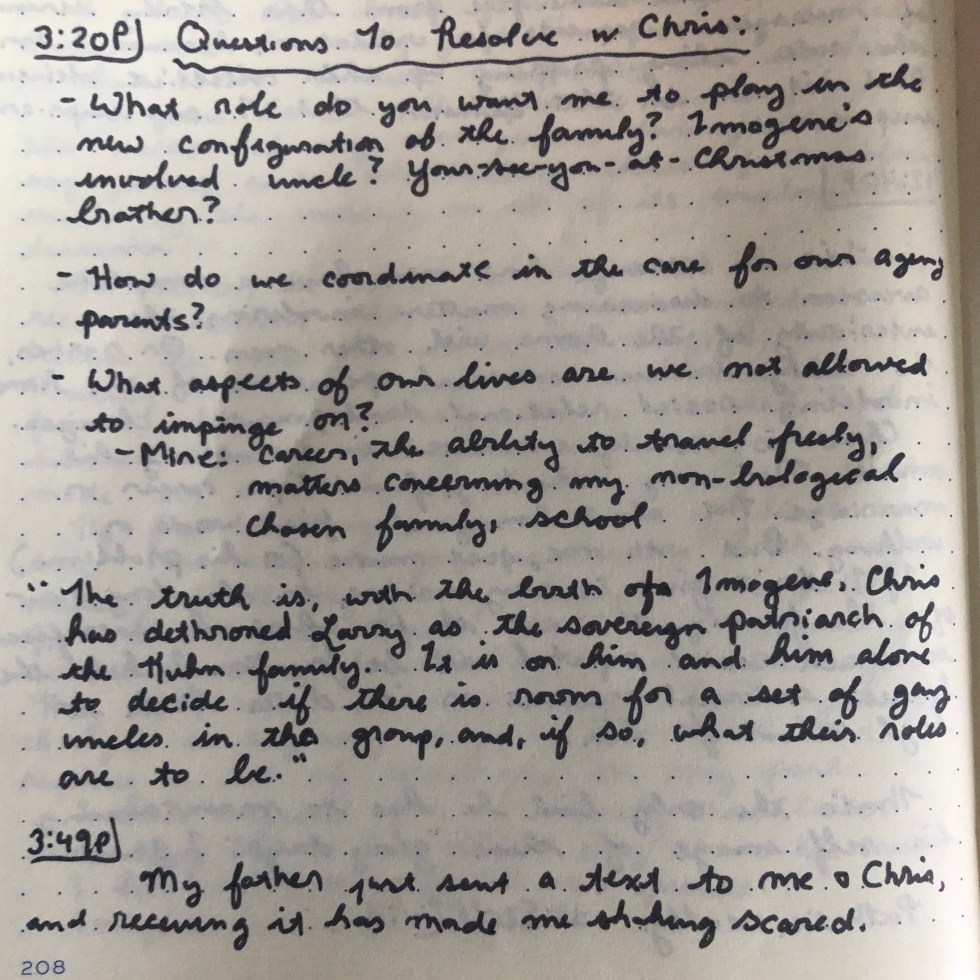 3:20P] Questions To Resolve w Chris:
- What role do you want me to play in the
new configuration of the family? Imogene's
involved uncle? Your see-you-at-Christmas
brother?
- How do we coordinate in the care for our aging
parents?
- What aspects of our lives are we not allowed
to impinge on?
- Mine: Career, the ability to travel freely,
matters concerning my non-biological
chosen family, school
"The truth is, with the birth of Imogene, Chris
has dethroned Larry as the sovereign patriarch of
the Kuhn family. It is on him and him alone
to decide if there is room for a set of gay
uncles in the group, and, if so, what their roles
are to be."
3:49P]
My father just sent a text to me & Chris,
and receiving it has made me shaking scared.
208